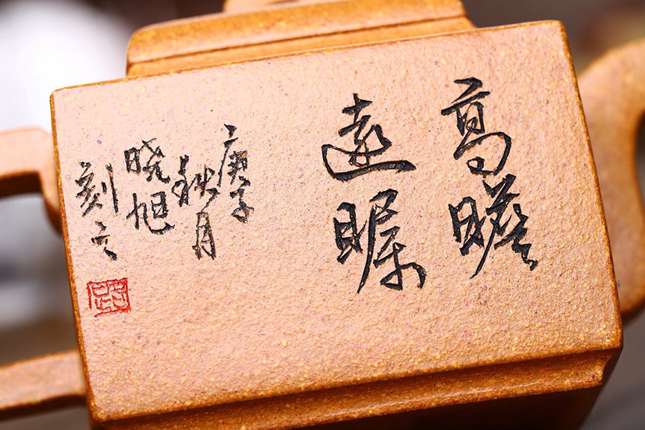 高瞻
遠瞩
庚子
秋月
晓旭
刻之